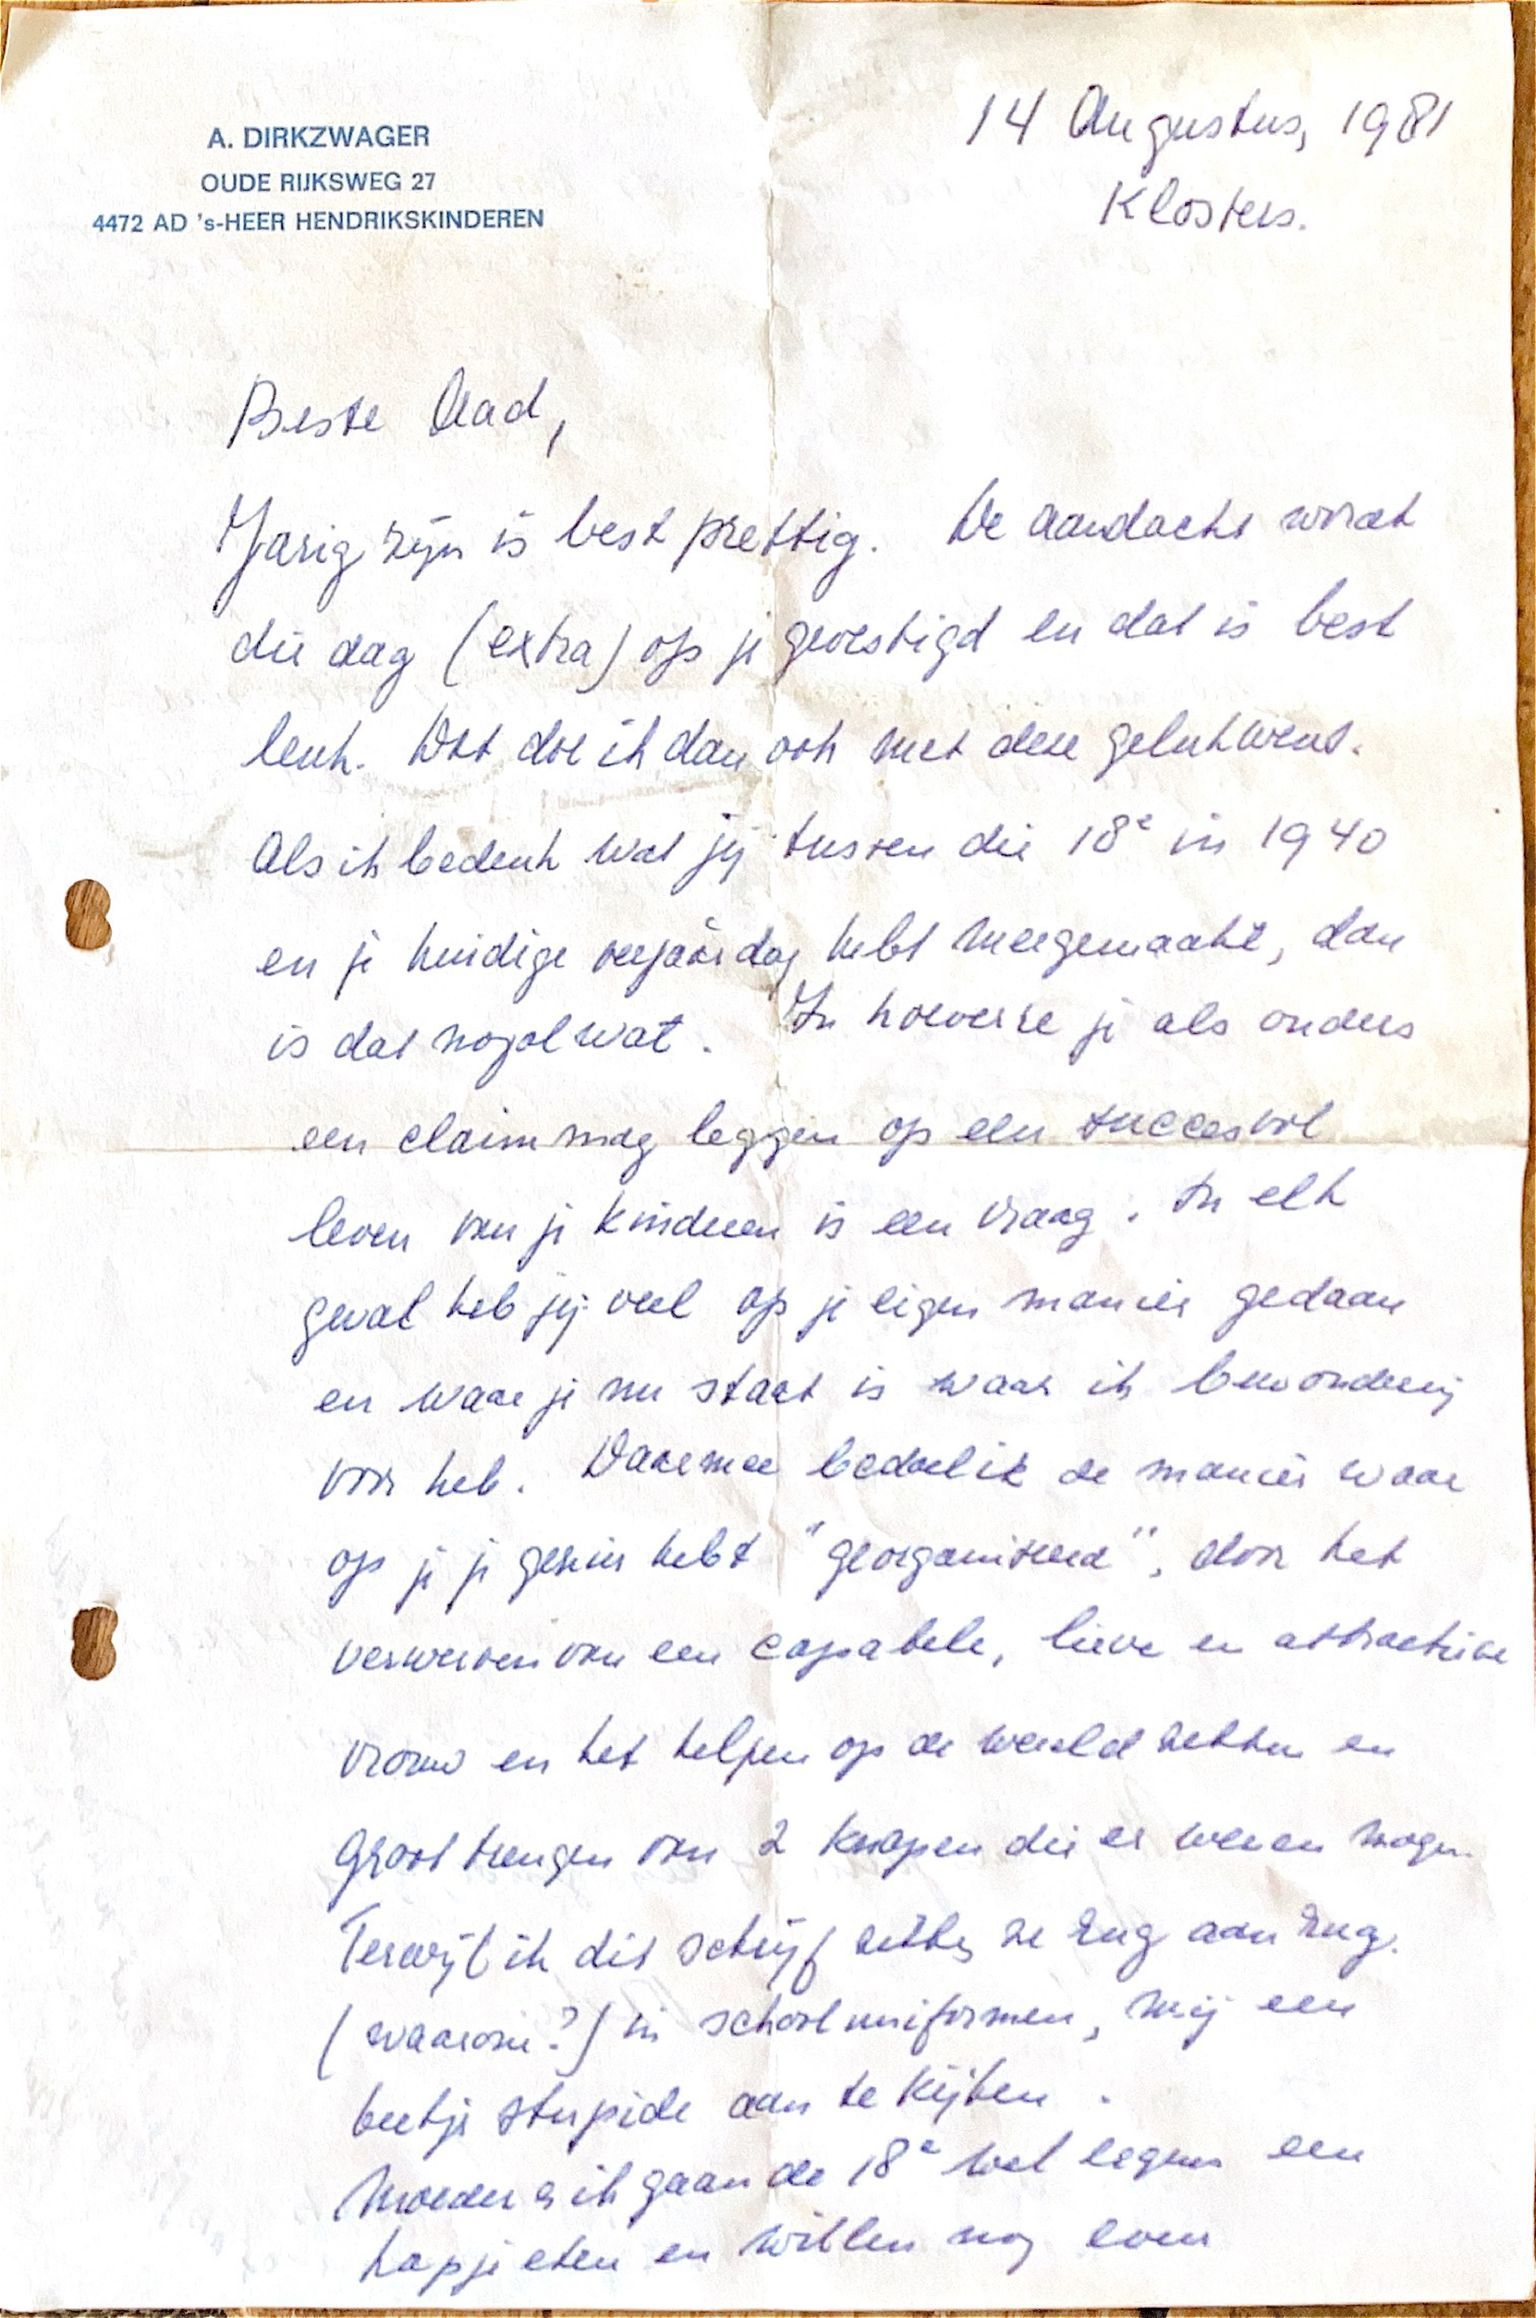 A. DIRKZWAGER
OUDE RIJKSWEG 27
4472 AD 's-HEER HENDRIKSKINDEREN
14 Augustus, 1981
Klosters.
Beste Aad,
Jarig zijn is best prettig. De aandacht wordt
die dag (extra) op je gevestigd en dat is best
leuk. Dat doe ik dan ook met deze gelukwens.
Als ik bedenk wat jij tussen die 18e in 1940
en je huidige verjaardag hebt meegemaakt, dan
is dat nogal wat. In hoeverre je als ouders
een claim mag leggen op een succesvol
leven van je kinderen is een vraag. In elk
geval heb jij veel op je eigen manier gedaan
en waar je nu staat is waar ik bewondering
voor heb. Daarmee bedoel ik de manier waar
op je je gezin hebt "georganiseerd", door het
verwerven van een capabele, lieve en attractieve
vrouw en het helpen op de wereld zetten en
groot brengen van 2 knapen die er wezen mogen.
Terwijl ik dit schrijf zitten ze rug aan rug.
(waarom?) in schooluniformen, mij een
beetje stupide aan te kijken.
Moeder & ik gaan de 18e wel ergens een
hapje eten en willen nog even